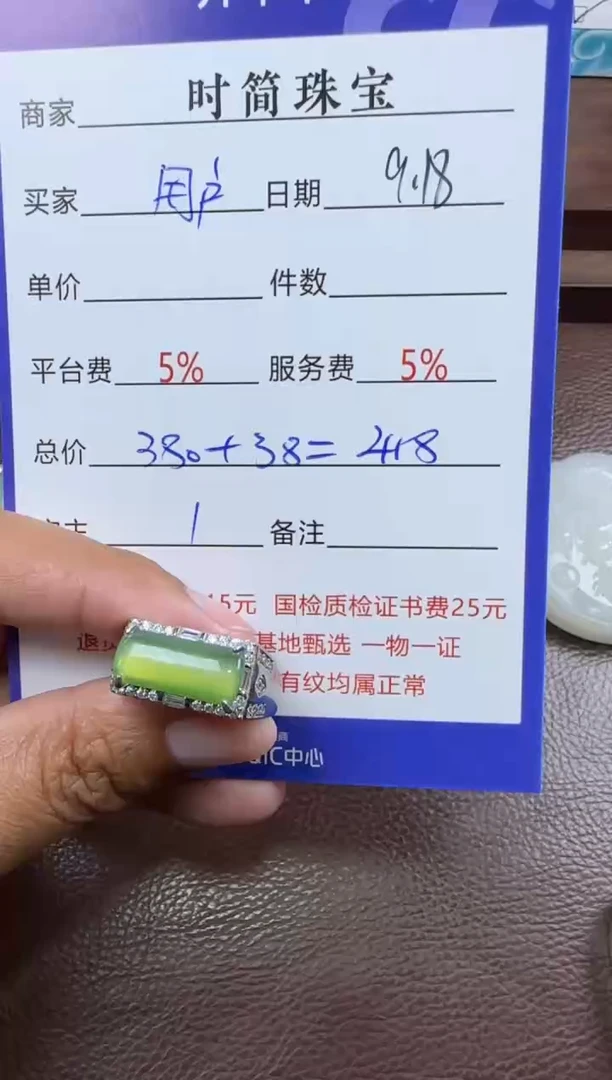 商家 时简珠宝
买家 用户 日期 9.18
单价 件数
平台费 5% 服务费 5%
总价 380+38=418
1 备注
15元 国检质检证书费25元
基地甄选 一物一证
有纹均属正常
中心